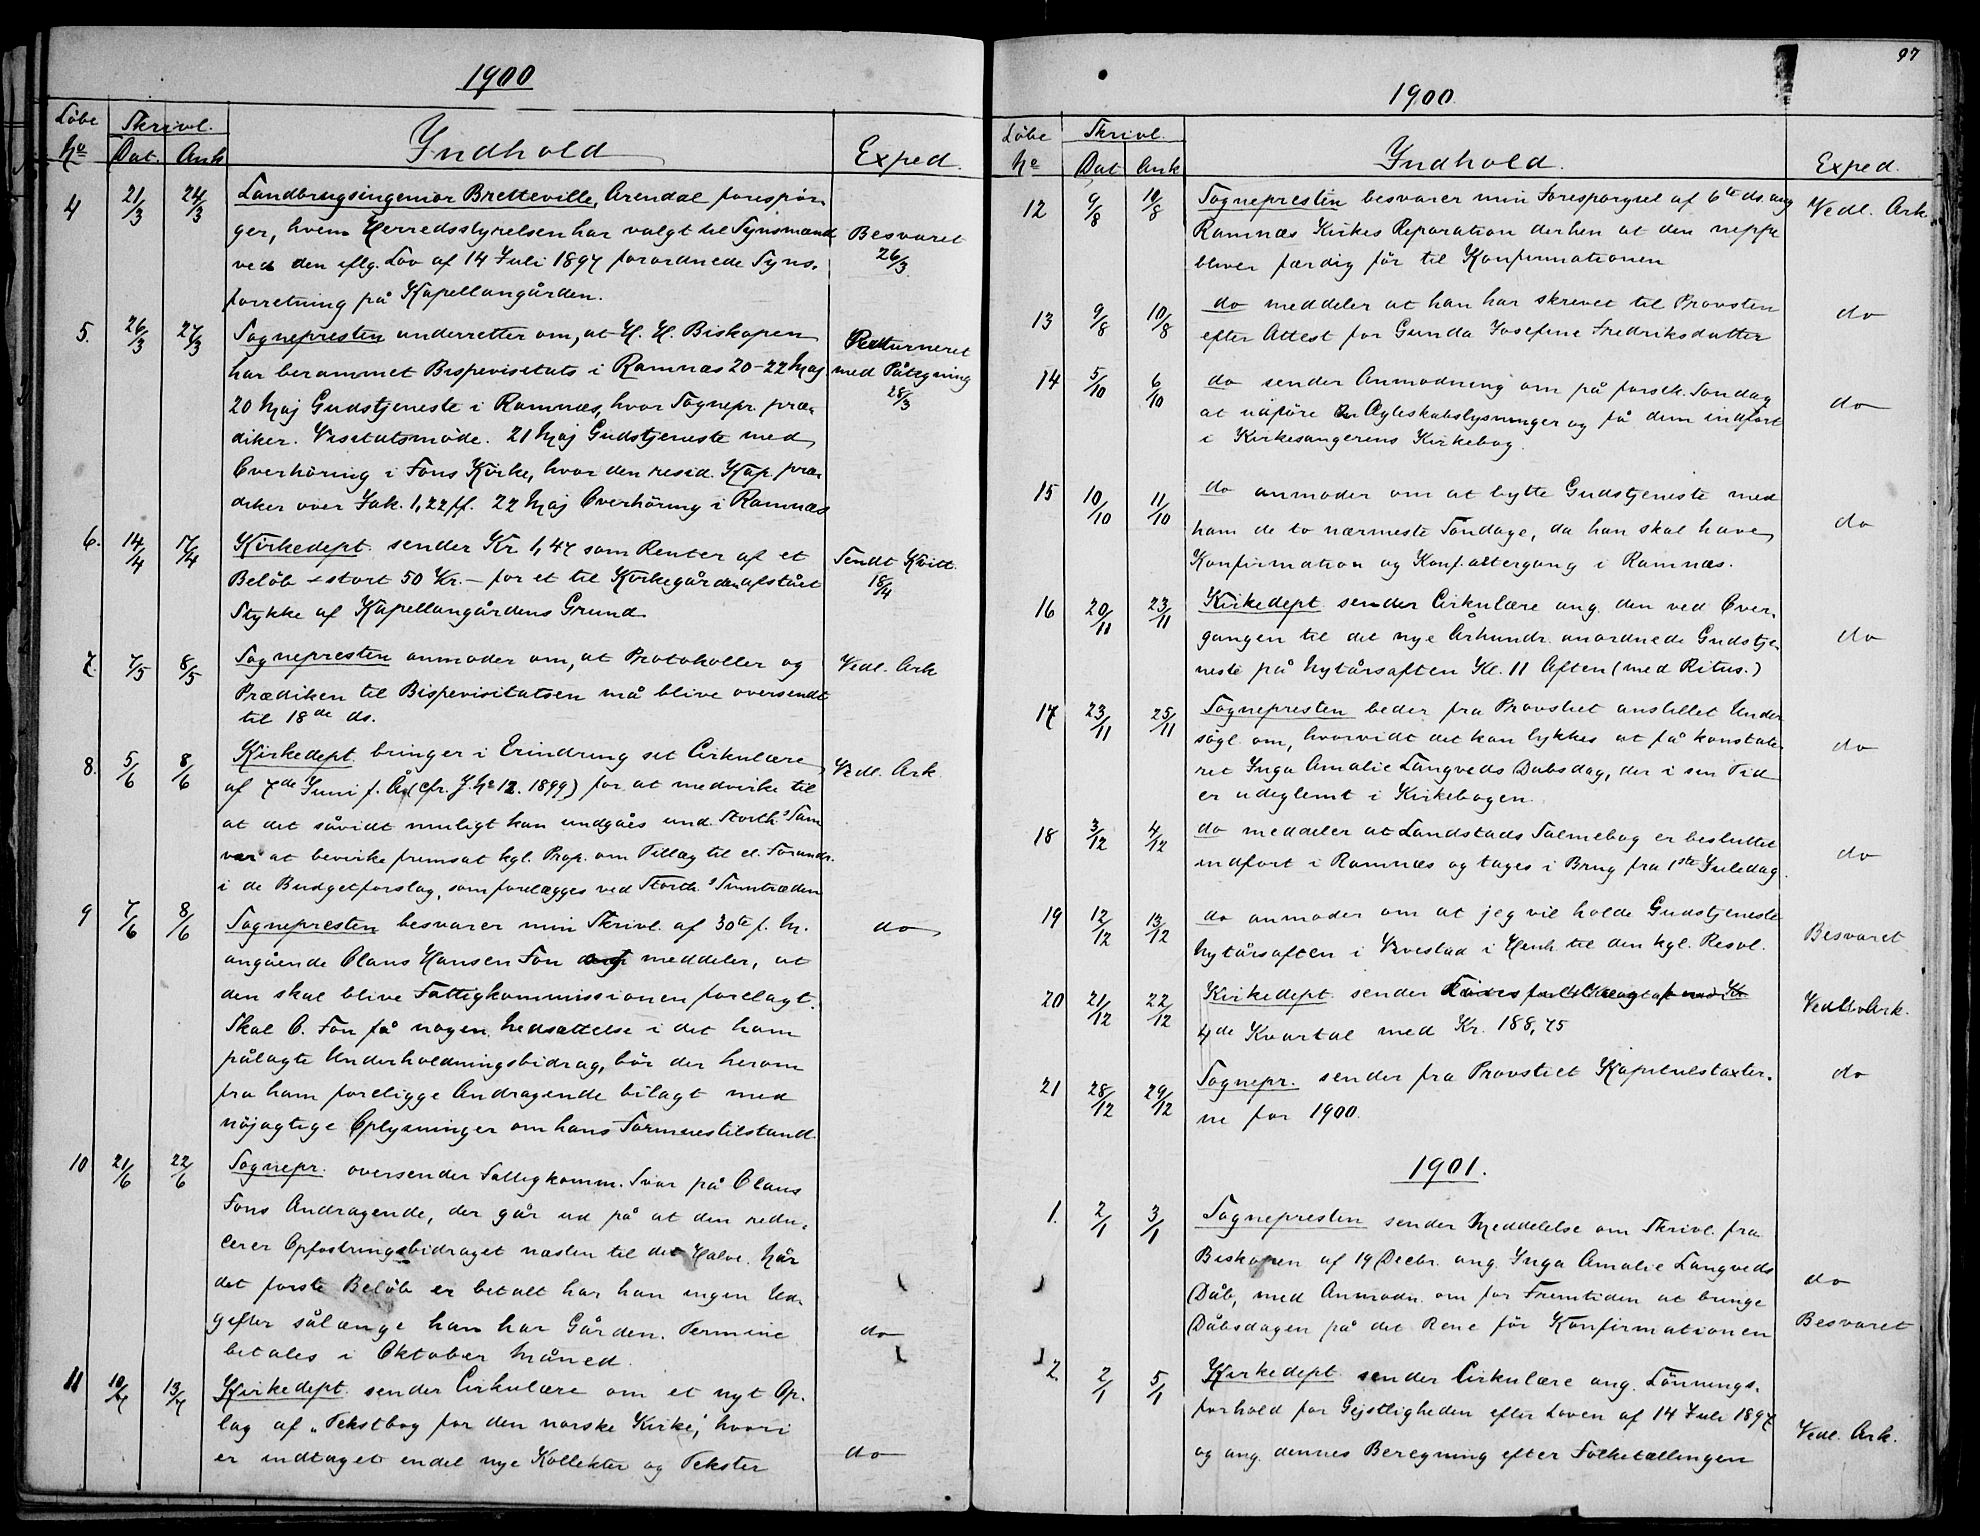 1900
Löbe Skrivl. Indhold Exped.
No Dat. Ank
4 21/3 24/3 Landbrugsingeniör Bretteville, Arendal forespör-
ger, hvem Herredsstyrelsen har valgt til Synsmænd Besvaret
ved den iflg. Lov af 14 Juli 1897 forordnede Syns- 26/3
forretning på Kapellangården.
5. 26/3 27/3 Sognepresten underretter om, at H. H. Biskopen Returneret
har berammet Bispevisitats i Ramnæs 20-22 Maj med Påtegning
20 Maj Gudstjeneste i Ramnæs, hvor Sognepr. præ- 28/3
diker. Visitatsmöde. 21 Maj Gudstjeneste med
Overhöring i Fons Kirke, hvor den resid. Kap. præ-
diker over Jak. 1,22 ff. 22 Maj Overhöring i Ramnæs
6. 14/4 17/4 Kirkedept. sender Kr 1,47 som Renter af et Sendt Kvitt.
Belöb - stort 50 Kr. - for et til Kirkegården afstået 18/4
Stykke af Kapellangårdens Grund.
7. 7/5 8/5 Sognepresten anmoder om, at Protokoller og Vedl. Ark
Prædiken til Bispevisitatsen må blive oversendt
til 18de ds.
8. 5/6 8/6 Kirkedept. bringer i Erindring sit Cirkulære Vedl. Ark.
af 7de Juni f. Å. (cfr. J. No 12. 1899) for at medvirke til
at det såvidt muligt kan undgåes und. Storth.s Sam
vær at bevirke fremsat kgl. Prop. om Tillæg til el. Forandr.
i de Budgetforslag, som forelægges ved Storth.s Smntræden
9 7/6 8/6 Sognepresten besvarer min Skrivl. af 30te f. M. do
angående Olaus Hansen Fon meddeler, at
den skal blive Fattigkommissionen forelagt.
Skal O. Fon få nogen Nedsættelse i det ham
pålagte Underholdningsbidrag, bör der herom
fra ham foreligge Andragende bilagt med
nöjagtige Oplysninger om hans Formuestilstand.
10 21/6 22/6 Sognepr. oversender Fattigkomm. Svar på Olaus
Fons Andragende, der går ud på at den redu-
cerer Opfostringsbidraget næsten til det Halve. Når
det forste Belöb er betalt har han ingen Ud-
gifter sålænge han har Gården. Termine do
betales i Oktober Måned.
11 10/7 13/7 Kirkedept. sender Cirkulære om et nyt Op-
lag af „Tekstbog for den norske Kirke", hvori
er indtaget endel nye Kollekter og Tekster do
97
1900
Löbe Skrivl. Indhold. Exped.
No Dat Ank
12 9/8 10/8 Sognepresten besvarer min Forespörgsel af 6te ds. ang Vedl. Ark
Ramnæs Kirkes Reparation derhen at den neppe
bliver færdig för til Konfirmationen
13 9/8 10/8 do meddeler at han har skrevet til Provsten do
efter Attest for Gunda Josefine Fredriksdatter
14 5/10 6/10 do sender Anmodning om på forstk. Söndag do
at udföre Ægteskabslysninger og få dem indfört
i Kirkesangerens Kirkebog.
15 10/10 11/10 do anmoder om at bytte Gudstjeneste med do
ham de to nærmeste Söndage, da han skal have
Konfirmation og Konf.altergang i Ramnæs.
16 20/11 23/11 Kirkedept. sender Cirkulære ang. den ved Over-
gangen til det nye Århundr. anordnede Gudstje- do
neste på Nytårsaften Kl. 11 Aften (med Ritus.)
17 23/11 25/11 Sognepresten beder fra Provstiet anstillet Under
sögl. om, hvorvidt det kan lykkes at få konstate- do
ret Inga Amalie Langveds Dåbsdag, der i sin Tid
er udeglemt i Kirkebogen.
18 3/12 4/12 do meddeler at Landstads Salmebog er besluttet
indfort i Ramnæs og tages i Brug fra 1ste Juledag. do
19 12/12 13/12 do anmoder om at jeg vil holde Gudstjeneste Besvaret
Nytårsaften i Vivestad i Henh. til den kgl. Resol.
20 21/12 22/12 Kirkedept. sender Vedl. Ark.
4de Kvartal med Kr. 188,75
21 28/12 29/12 Sognepr. sender fra Provstiet Kapitelstaxter- do
ne for 1900.
1901.
1. 2/1 3/1 Sognepresten sender Meddelelse om Skrivl. fra
Biskopen af 19 Decbr. ang. Inga Amalie Langveds do
Dåb, med Anmodn. om for Fremtiden at bringe
Dåbsdagen på det Rene för Konfirmationen Besvaret
2. 2/1 5/1 Kirkedept. sender Cirkulære ang. Lönnings-
forhold for Gejstligheden efter Loven af 14 Juli 1897 Vedl. Ark.
og ang. dennes Beregning efter Folketællingen